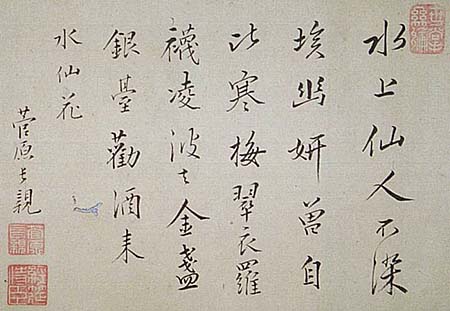 水上仙人不染
埃幽妍曽自
比寒梅翠衣羅
襪凌波去金盞
銀臺勸酒来
水仙花
菅原長親